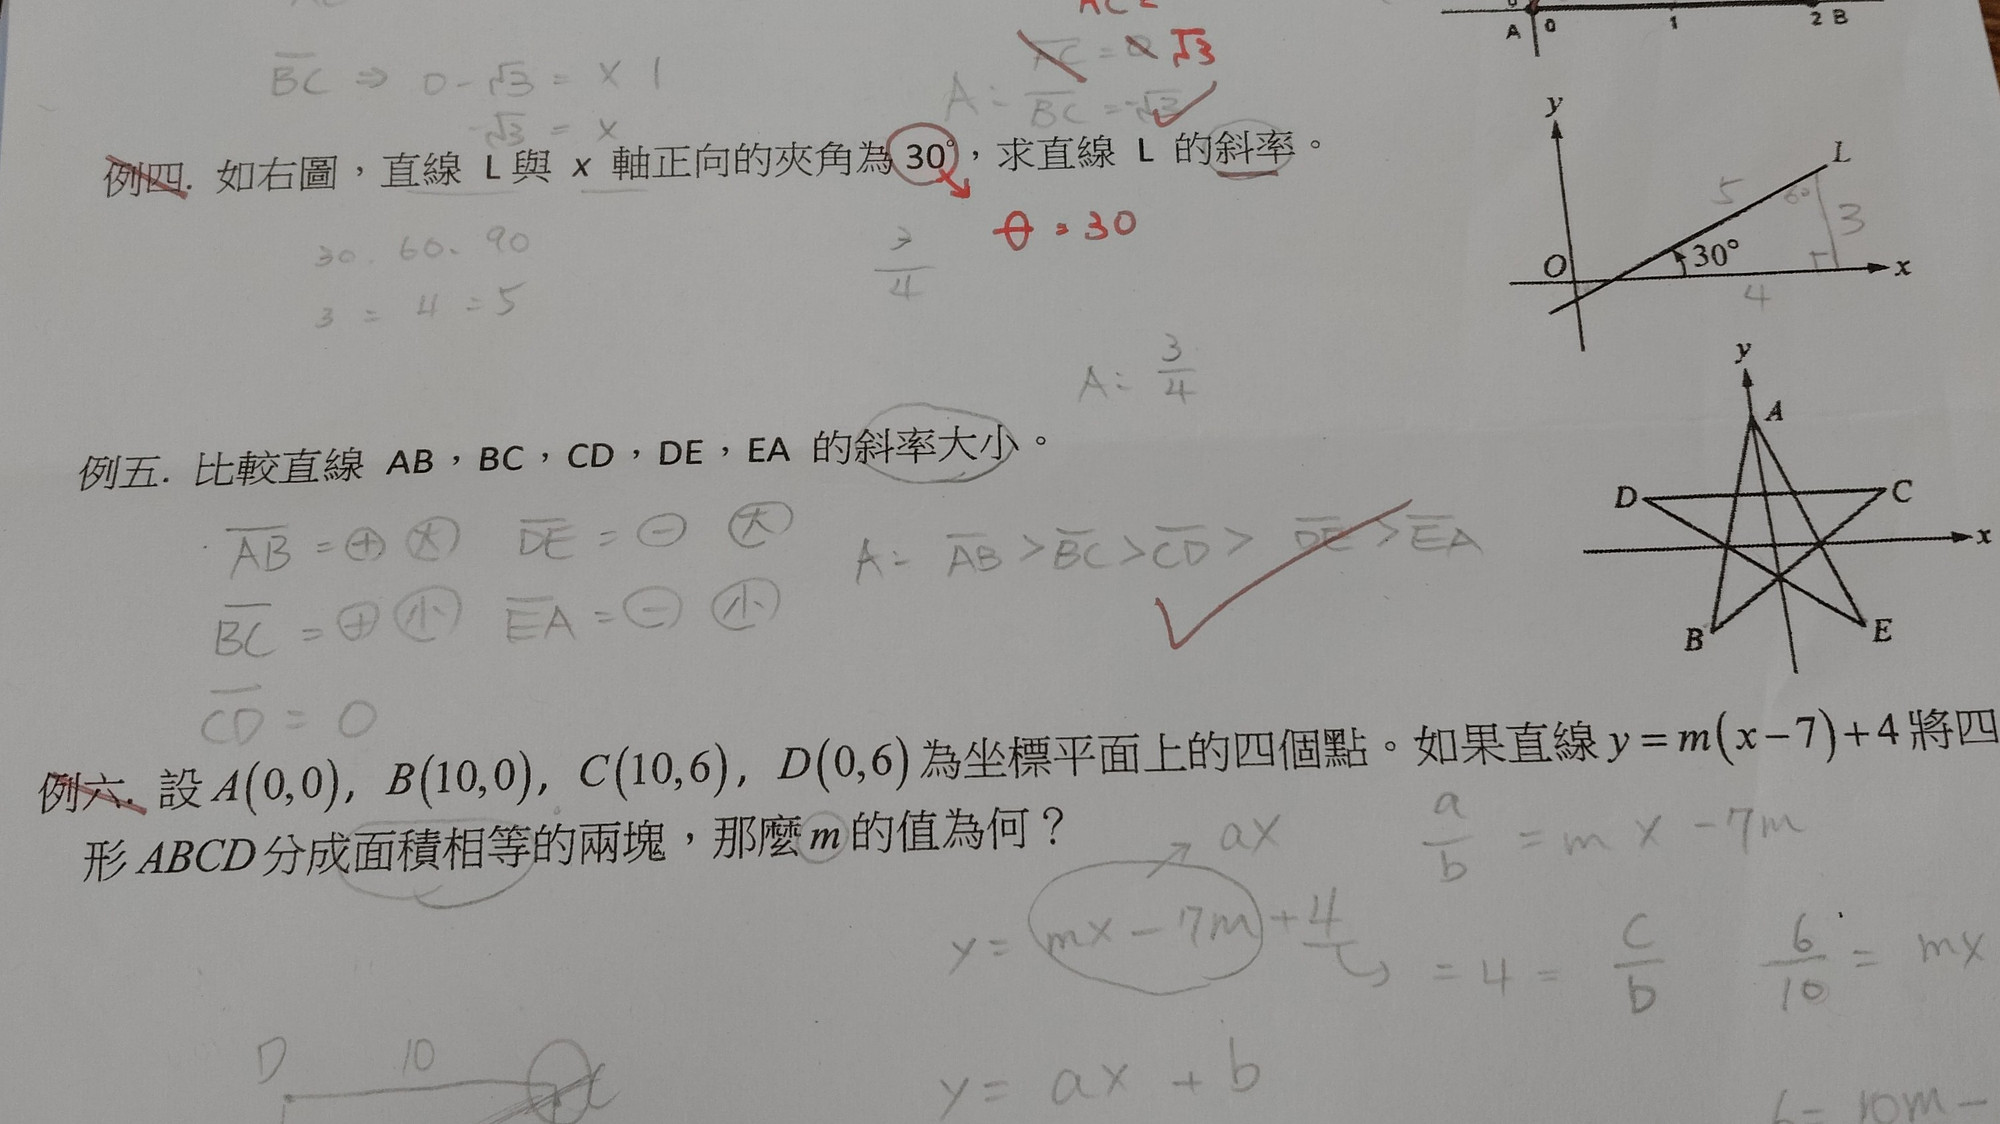 AC =
A 0 1 2 B
BC ⇒ 0 - √3 = x 1
-√3 = x
AC = √3
A: BC = -√3
例四. 如右圖，直線 L 與 x 軸正向的夾角為 30°，求直線 L 的斜率。
θ = 30
30. 60. 90
3 = 4 = 5
3/4
A: 3/4
y
L
5
60
3
O
30°
x
4
例五. 比較直線 AB，BC，CD，DE，EA 的斜率大小。
AB = ⊕ 大 DE = ⊖ 大
BC = ⊕ 小 EA = ⊖ 小
CD = 0
A: AB > BC > CD > DE > EA
y
A
D
C
x
B
E
例六. 設 A(0,0), B(10,0), C(10,6), D(0,6) 為坐標平面上的四個點。如果直線 y = m(x-7)+4 將四
形 ABCD 分成面積相等的兩塊，那麼 m 的值為何？
ax
a/b = mx - 7m
y = mx - 7m + 4
= 4 = c/b
6/10 = mx
y = ax + b
6 = 10m -
D 10 C